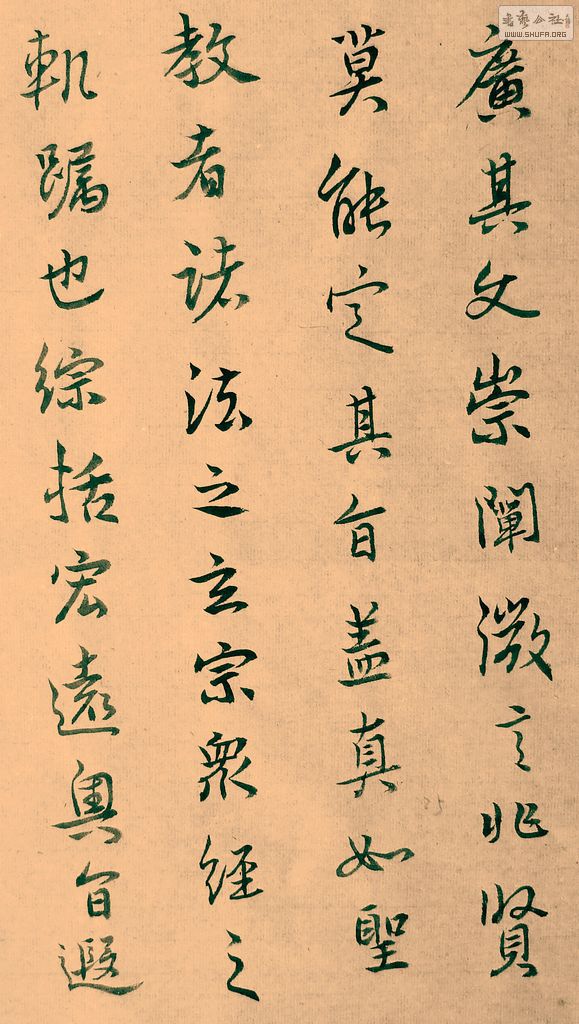 廣其文崇闡微言非賢
莫能定其旨盖真如聖
教者諸法之玄宗眾經之
軌躅也綜括宏遠奧旨遐
書藝公社
WWW.SHUFA.ORG